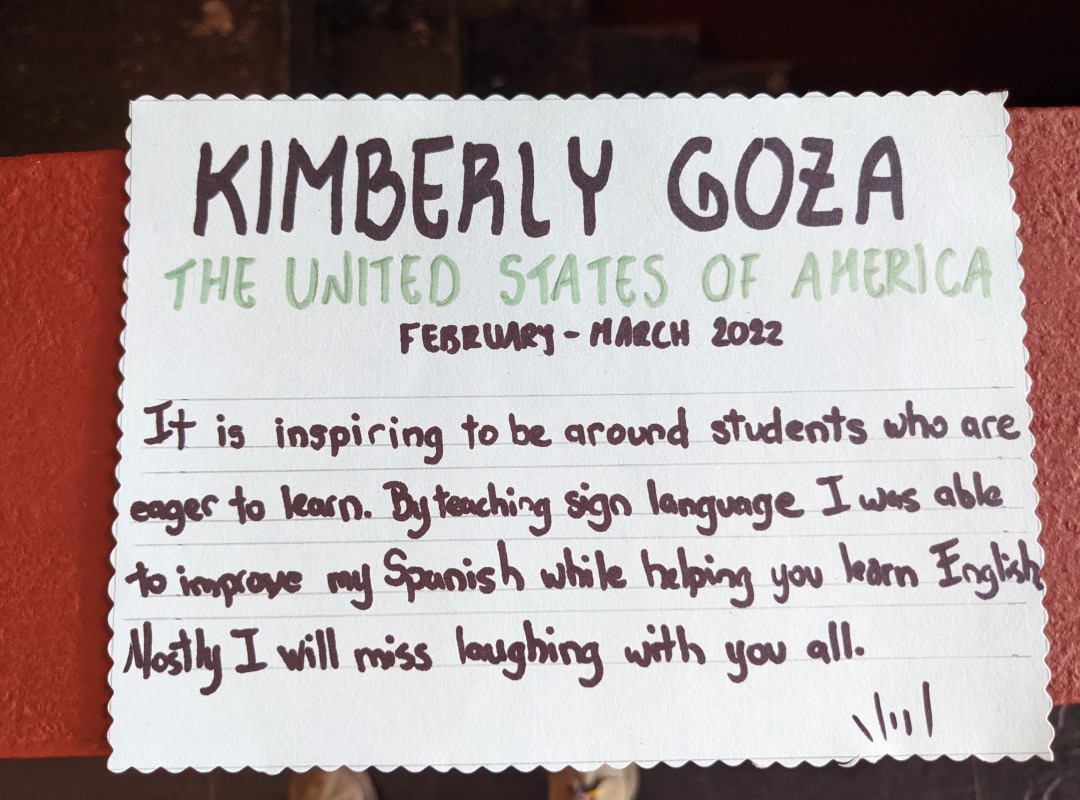 KIMBERLY GOZA
THE UNITED STATES OF AMERICA
FEBRUARY - MARCH 2022
It is inspiring to be around students who are
eager to learn. By teaching sign language I was able
to improve my Spanish while helping you learn English
Mostly I will miss laughing with you all.